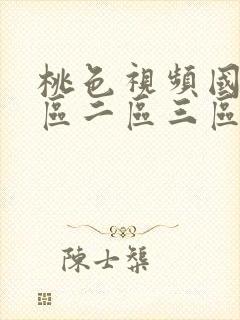 桃色視頻國
區二區三區
陳士榘